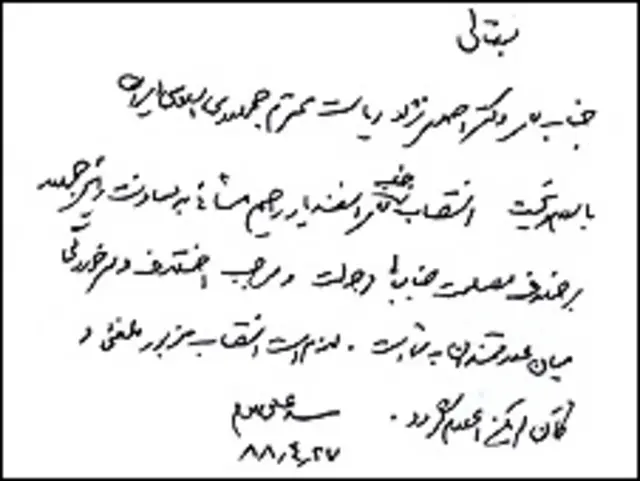 بسمه‌تعالی
جناب آقای دکتر احمدی نژاد ریاست محترم جمهوری اسلامی ایران
با سلام و تحیت انتصاب جناب آقای اسفندیار رحیم مشائی به معاونت رئیس جمهور
بر خلاف مصلحت جنابعالی و دولت و موجب اختلاف و سرخوردگی
میان علاقمندان به شما است. لازم است انتصاب مزبور ملغی و
کان لم یکن اعلام گردد.
سید علی خامنه‌ای
۸۸٫۴٫۲۷